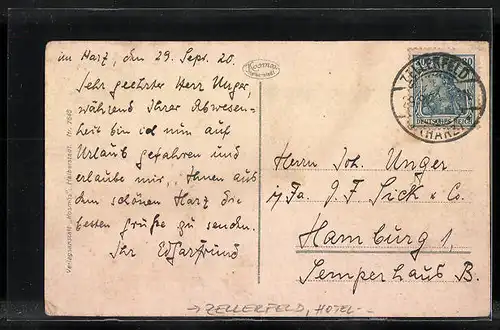 im Harz, den 29. Sept. 20.
Sehr geehrter Herr Unger,
während Ihrer Abwesen-
heit bin ich nun auf
Urlaub gefahren und
erlaube mir, Ihnen aus
dem schönen Harz die
besten Grüße zu senden.
Ihr
Herrn Joh. Unger
i/Fa. J. F. Sick & Co.
Hamburg 1,
Semperhaus B.
ZELLERFELD
(HARZ)
DEUTSCHES REICH
→ ZELLERFELD, HOTEL -